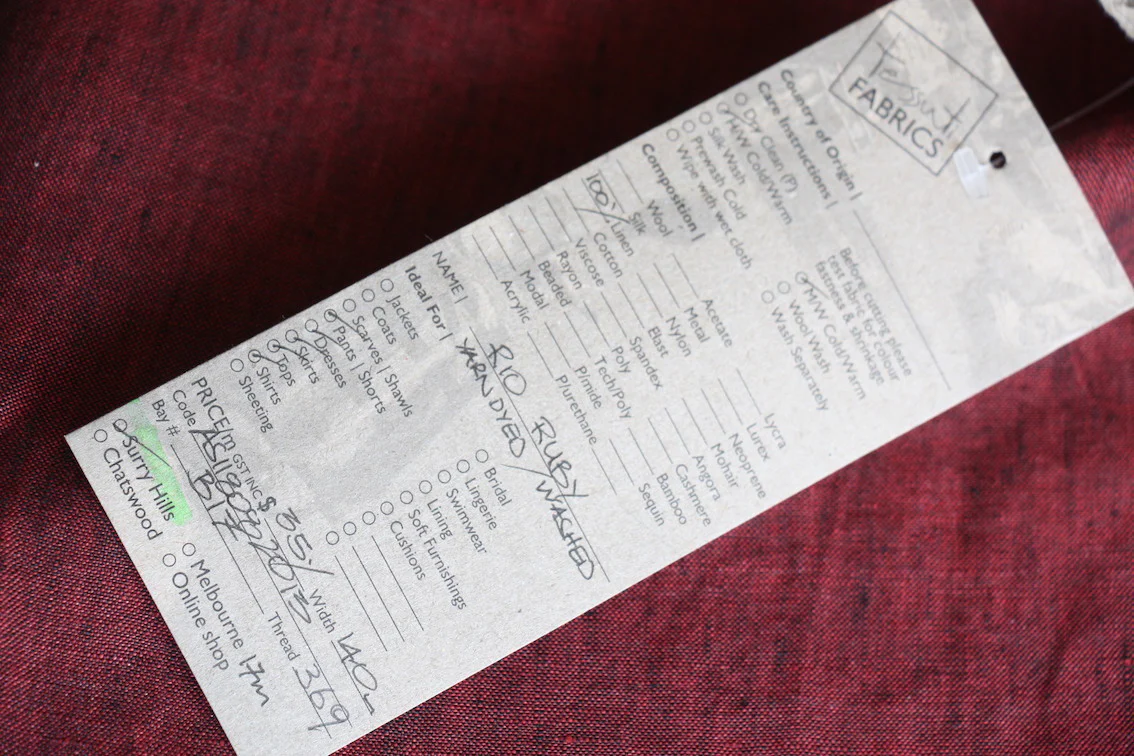 Tessuti
FABRICS
Country of Origin |
Care Instructions |
Dry Clean (P)
M/W Cold/Warm
Silk Wash
Prewash Cold
Wipe with wet cloth
Before cutting please
test fabric for colour
fastness & shrinkage
M/W Cold/Warm
Wool Wash
Wash Separately
Composition |
Wool
Silk
100% Linen
Cotton
Viscose
Rayon
Beaded
Modal
Acrylic
Acetate
Metal
Nylon
Elast
Spandex
Poly
Tech/Poly
P/mide
P/urethane
Lycra
Lurex
Neoprene
Mohair
Angora
Cashmere
Bamboo
Sequin
NAME | RIO RUBY
YARN DYED / WASHED
Ideal For |
Jackets
Coats
Scarves | Shawls
Pants | Shorts
Dresses
Skirts
Tops
Shirts
Sheeting
Bridal
Lingerie
Swimwear
Lining
Soft Furnishings
Cushions
PRICE/m GST INC $ 35.- Width 140
Code
Thread 369
Bay #
Surry Hills
Chatswood
Melbourne 17m
Online shop